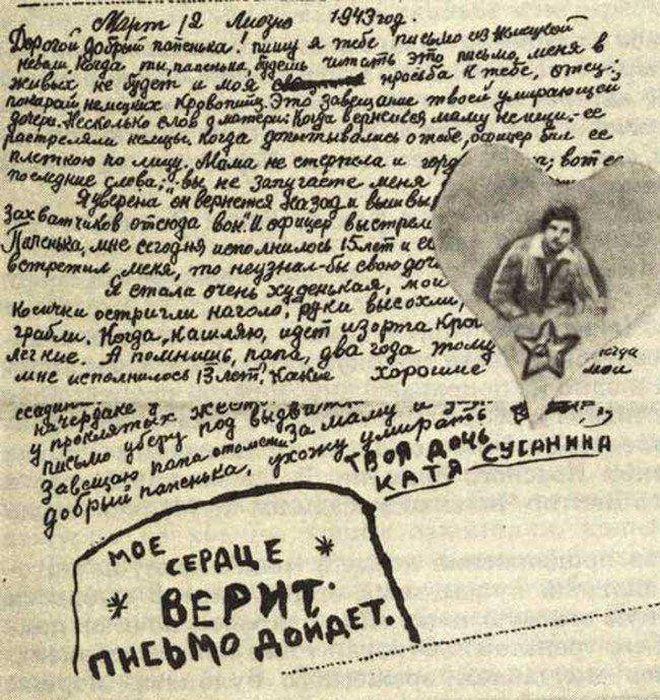 Март 12 Лиозно 1943 год.
Дорогой, добрый папенька! пишу я тебе письмо из немецкой
неволи. Когда ты, папенька, будешь читать это письмо, меня в
живых не будет и моя просьба к тебе, отец;
покарай немецких кровопийц. Это завещание твоей умирающей
дочери. Несколько слов о матери. Когда вернешся маму не ищи. - ее
расстреляли немцы. Когда допытывались о тебе, офицер бил ее
плеткою по лицу. Мама не стерпела и горд ; вот ее
последние слова; "вы не запугаете меня
Я уверена он вернется назад и вышвыр
захватчиков отсюда вон" И офицер выстрел
Папенька, мне сегодня исполнилось 15 лет и ес
встретил меня, то не узнал-бы свою доч
Я стала очень худенькая, мои
Косички остригли наголо, руки высохли,
грабли. Когда, кашляю, идет из орта кро
легкие. А помнишь, папа, два года тому когда
мне исполнилось 13 лет, какие хорошие мои
на чердаке у
у проклятых жест
письмо уберу под
Завещаю папа отомсти за маму и
добрый папенька, ухожу умирать
ТВОЯ ДОЧЬ
КАТЯ СУСАНИНА
МОЕ
СЕРДЦЕ
ВЕРИТ.
ПИСЬМО ДОЙДЕТ.